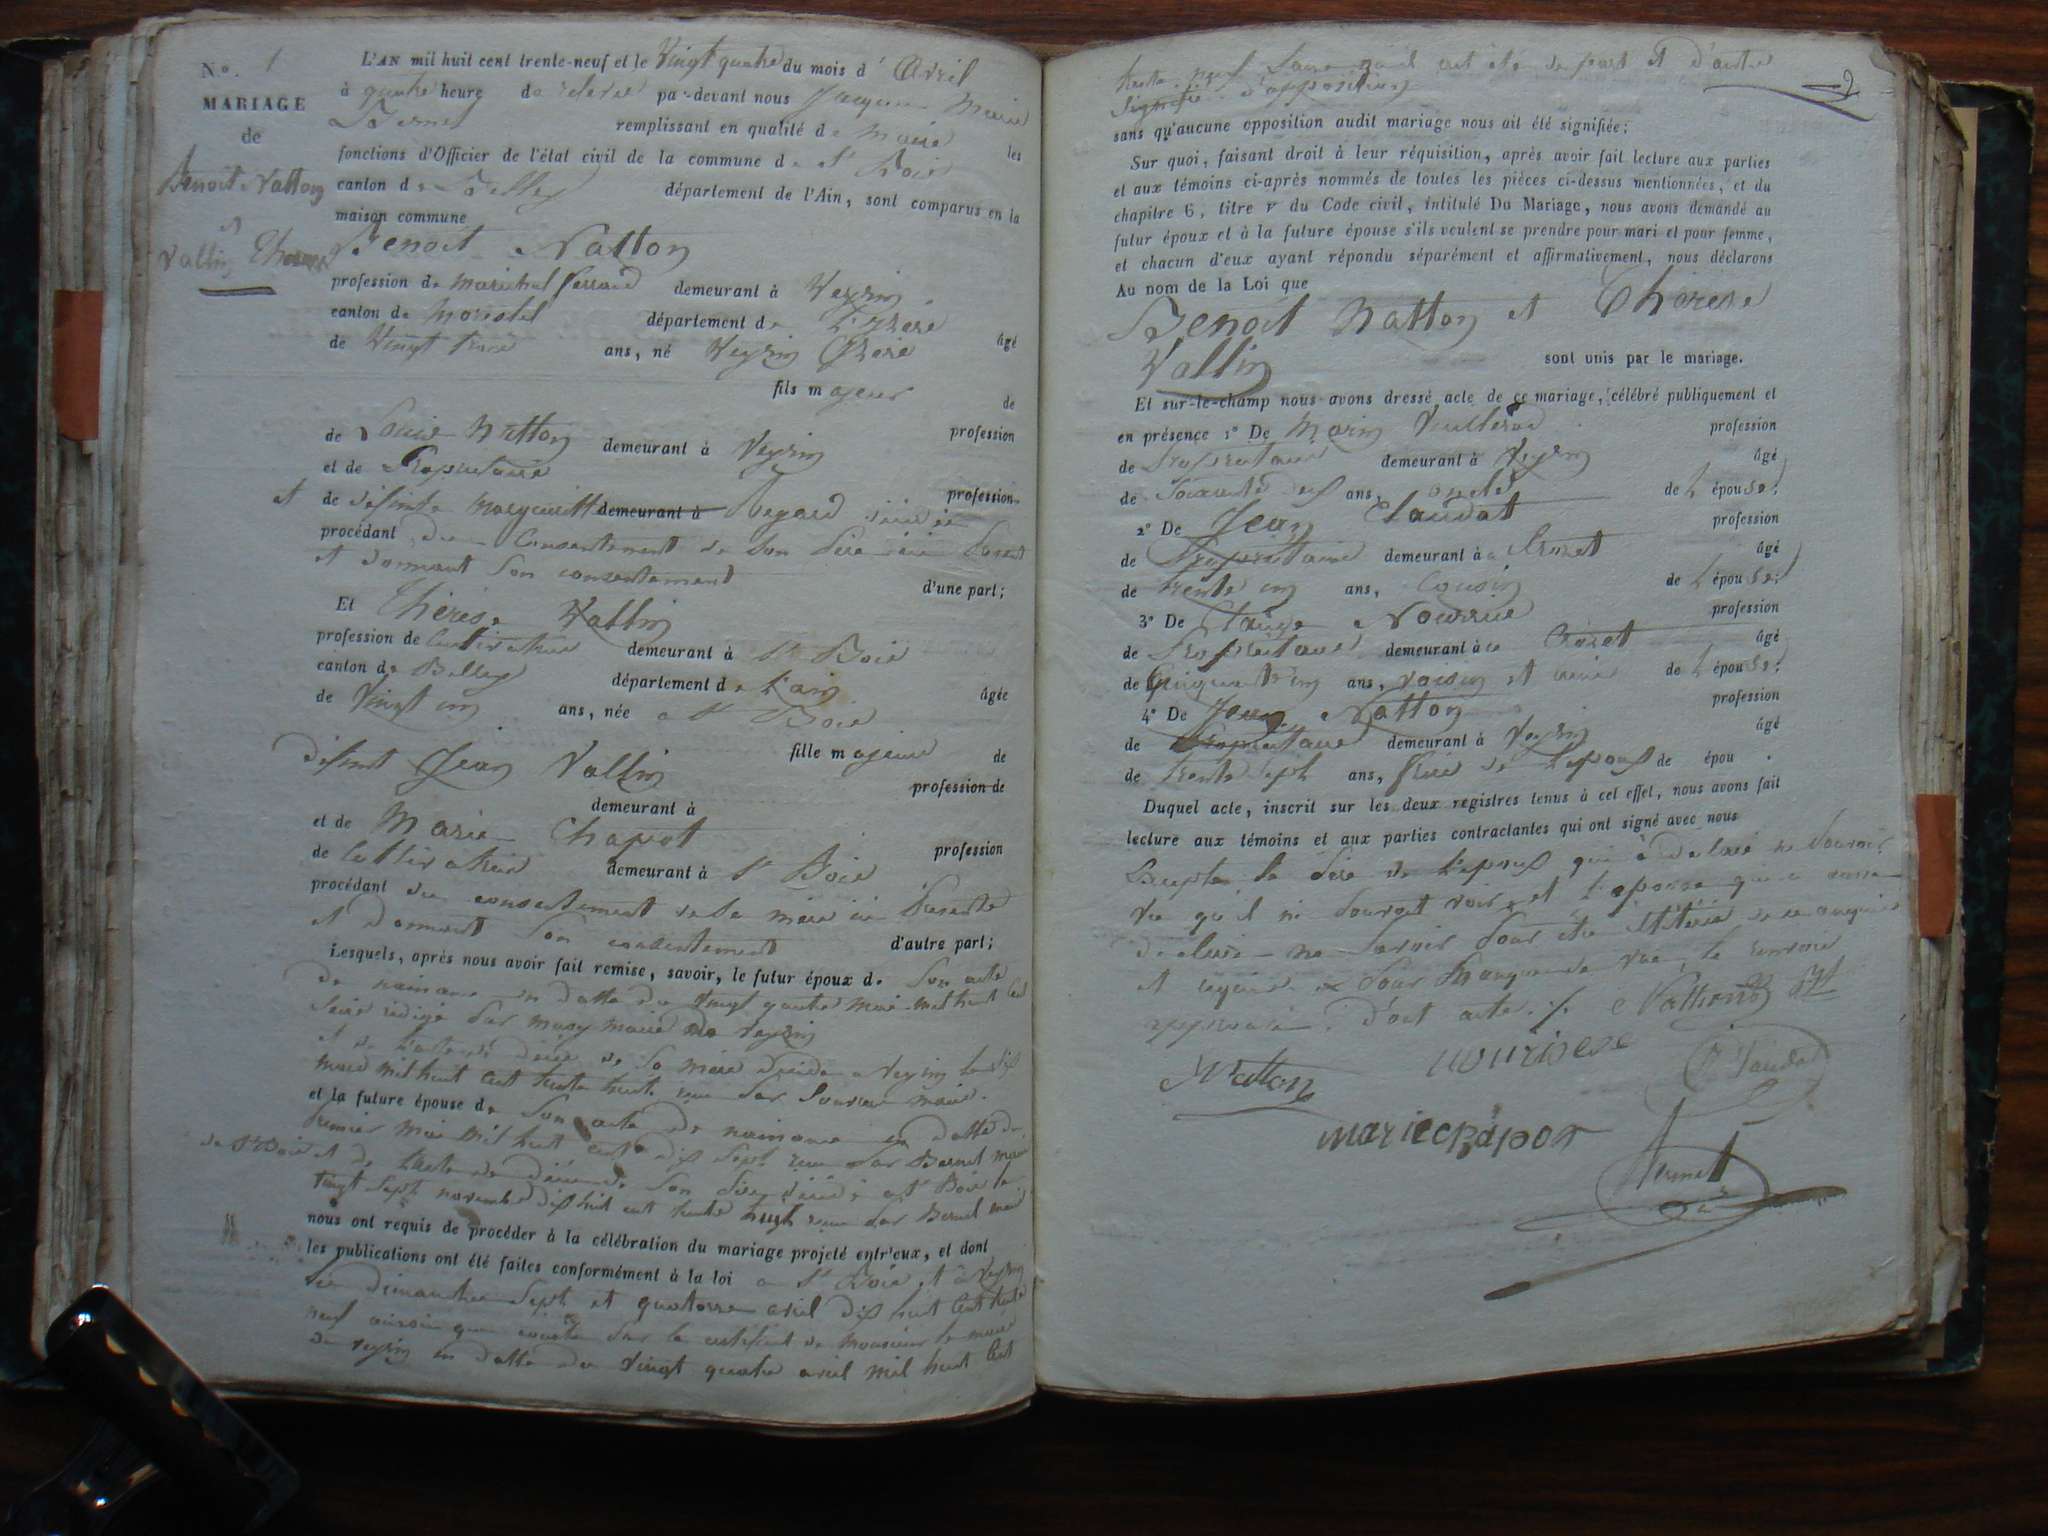 No. 1
MARIAGE
de
Benoit Natton
et
Vallin Therese
L'AN mil huit cent trente-neuf et le Vingt quatre du mois d' Avril
à quatre heure de relevé par-devant nous Jacques Marie
Bernet remplissant en qualité de Maire les
fonctions d'Officier de l'état civil de la commune de St Bois
canton de Belley département de l'Ain, sont comparus en la
maison commune
Benoit Natton
profession de marechal ferrand demeurant à Veyrin
canton de Morestel département de L'Isere âgé
de Vingt trois ans, né Veyrin Isere
fils majeur de
de Louis Natton demeurant à Veyrin profession
et de Propriétaire
et de défunte Marguerite demeurant à profession
procédant du Consentement de son Père ici Present
et donnant son consentement d'une part;
Et Thérèse Vallin
profession de Cultivatrice demeurant à St Bois
canton de Belley département de L'ain âgée
de Vingt un ans, née a St Bois
fille majeure de
défunt Jean Vallin profession de
demeurant à
et de Marie Chapot profession
de Cultivatrice demeurant à St Bois
procédant du consentement de sa mère ici Presente
et donnant son consentement d'autre part;
Lesquels, après nous avoir fait remise, savoir, le futur époux de son acte
de naissance en datte du Vingt quatre mai mil huit Cent
Seize rédigé par maire de Veyrin
et de l'acte de décès de sa mère décédée a Veyrin le dix
mil huit cent trente huit par maire.
et la future épouse de son acte de naissance en datte du
Premier Mai mil huit cent dix sept par Bernet maire
de St Bois et de l'acte de décès de son père décédé a St Bois le
Vingt Sept novembre dix huit cent trente huit par Bernet maire
nous ont requis de procéder à la célébration du mariage projeté entr'eux, et dont
les publications ont été faites conformément à la loi a St Bois et à Veyrin
Les Dimanches Sept et quatorze avril dix huit Cent trente
neuf ainsi que conste par le certificat de Monsieur le maire
de Veyrin en datte du Vingt quatre avril mil huit Cent
2
trente neuf Sans qu'il ait été de part et d'autre
Signifié d'opposition
sans qu'aucune opposition audit mariage nous ait été signifiée;
Sur quoi, faisant droit à leur réquisition, après avoir fait lecture aux parties
et aux témoins ci-après nommés de toutes les pièces ci-dessus mentionnées, et du
chapitre 6, titre V du Code civil, intitulé Du Mariage, nous avons demandé au
futur époux et à la future épouse s'ils veulent se prendre pour mari et pour femme,
et chacun d'eux ayant répondu séparément et affirmativement, nous déclarons
Au nom de la Loi que
Benoit Natton et Thérèse
Vallin sont unis par le mariage.
Et sur-le-champ nous avons dressé acte de ce mariage, célébré publiquement et
en présence 1° De Marin profession
de Propriétaire demeurant à Veyrin âgé
de Soixante Dix ans, oncle de L'épouse;
2° De Jean Claudat profession
de Propriétaire demeurant à Crozet âgé
de trente un ans, Cousin de L'épouse;
3° De Claude profession
de Propriétaire demeurant à Crozet âgé
de Cinquante un ans, voisin et amie de L'épouse;
4° De Jean Natton profession
de Propriétaire demeurant à Veyrin âgé
de trente Sept ans, frere de L'epoux de épou .
Duquel acte, inscrit sur les deux registres tenus à cet effet, nous avons fait
lecture aux témoins et aux parties contractantes qui ont signé avec nous
Excepté le Père de L'epoux qui a Declaré ne Pouvoir
Vu qu'il ne Pouvoit voir, et L'epouse qui a aussi
declaré ne Savoir Pour être de ce enquise
et requise Pour Manque de vue, le renvoie
approuvé. D'ont acte ./.
Natton
mariechapot
Bernet